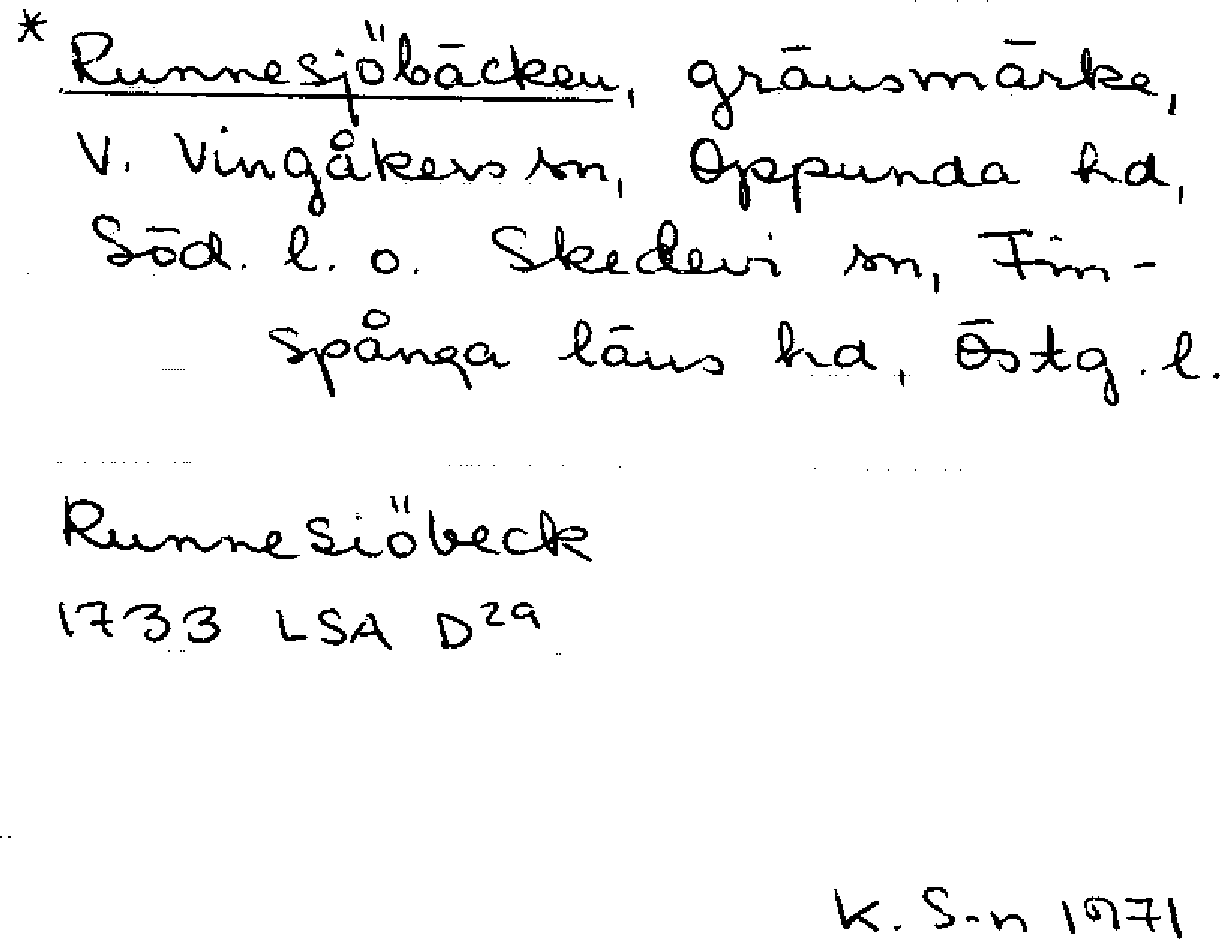 * Runnesjöbäcken, gränsmärke,
V. Vingåkers sn, Oppunda hd,
Söd. l. o. Skedevi sn, Fin-
spånga läns hd, Östg. l.
Runnesiöbeck
1733 LSA D²⁹
K. S-n 1971